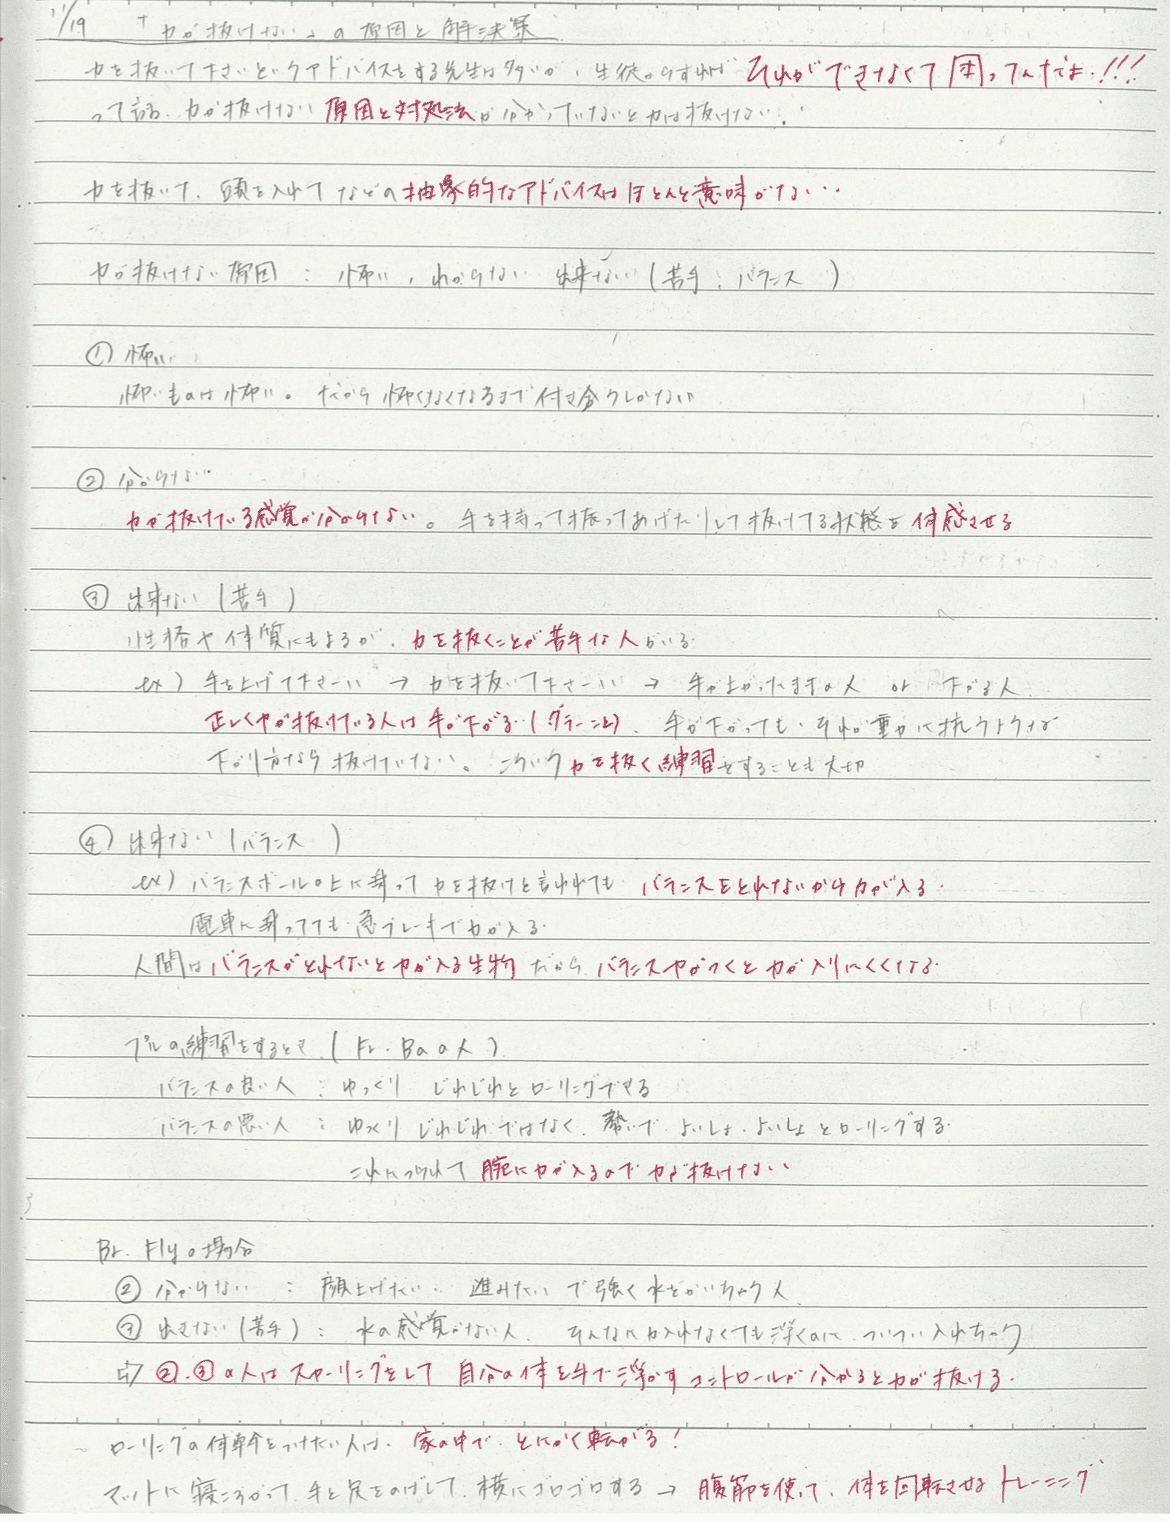 11/19 「力が抜けない」の原因と解決策
力を抜いて下さいというアドバイスをする先生は多いが、生徒からすれば それができなくて困ってんだよ!!!
って話。力が抜けない 原因と対処法が分かっていないと力は抜けない。
力を抜いて、頭を入れて などの抽象的なアドバイスはほとんど意味がない…
力が抜けない原因：怖い，わからない 出来ない（苦手：バランス ）
① 怖い
怖いものは怖い。だから怖くなくなるまで付き合うしかない
② 分からない
力が抜けている感覚が分からない。手を持って振ってあげたりして抜けてる状態を体感させる
③ 出来ない（苦手）
性格や体質にもよるが、力を抜くことが苦手な人がいる
ex）手を上げて下さーい → 力を抜いて下さーい → 手が上がったままの人 or 下がる人
正しく力が抜けている人は手が下がる（ダラーンと）。手が下がっても、それが重力に抗うような
下がり方なら抜けていない。こういう力を抜く練習をすることも大切
④ 出来ない（バランス ）
ex）バランスボールの上に乗って力を抜けと言われても バランスをとれないから力が入る
電車に乗ってても急ブレーキで力が入る
人間はバランスがとれないと力が入る生物 だから バランス力がつくと力が入りにくくなる
プルの練習をするとき（Fr. Baの人）
バランスの良い人：ゆっくり じわじわとローリングできる
バランスの悪い人：ゆっくり じわじわではなく、勢いで よいしょ、よいしょ とローリングする
これにつられて 腕に力が入るので力が抜けない
Br. Flyの場合
② 分からない ：顔上げたい 進みたい で強く水をかいちゃう人
③ 出きない（苦手）：水の感覚がない人 そんなに力入れなくても浮くのに ついつい入れちゃう
⇨ ②.③の人はスカーリングをして 自分の体を手で浮かすコントロールが分かると力が抜ける
ローリングの体幹をつけたい人は、家の中で とにかく転がる！
マットに寝ころがって、手と足をのばして、横にゴロゴロする → 腹筋を使って、体を回転させるトレーニング